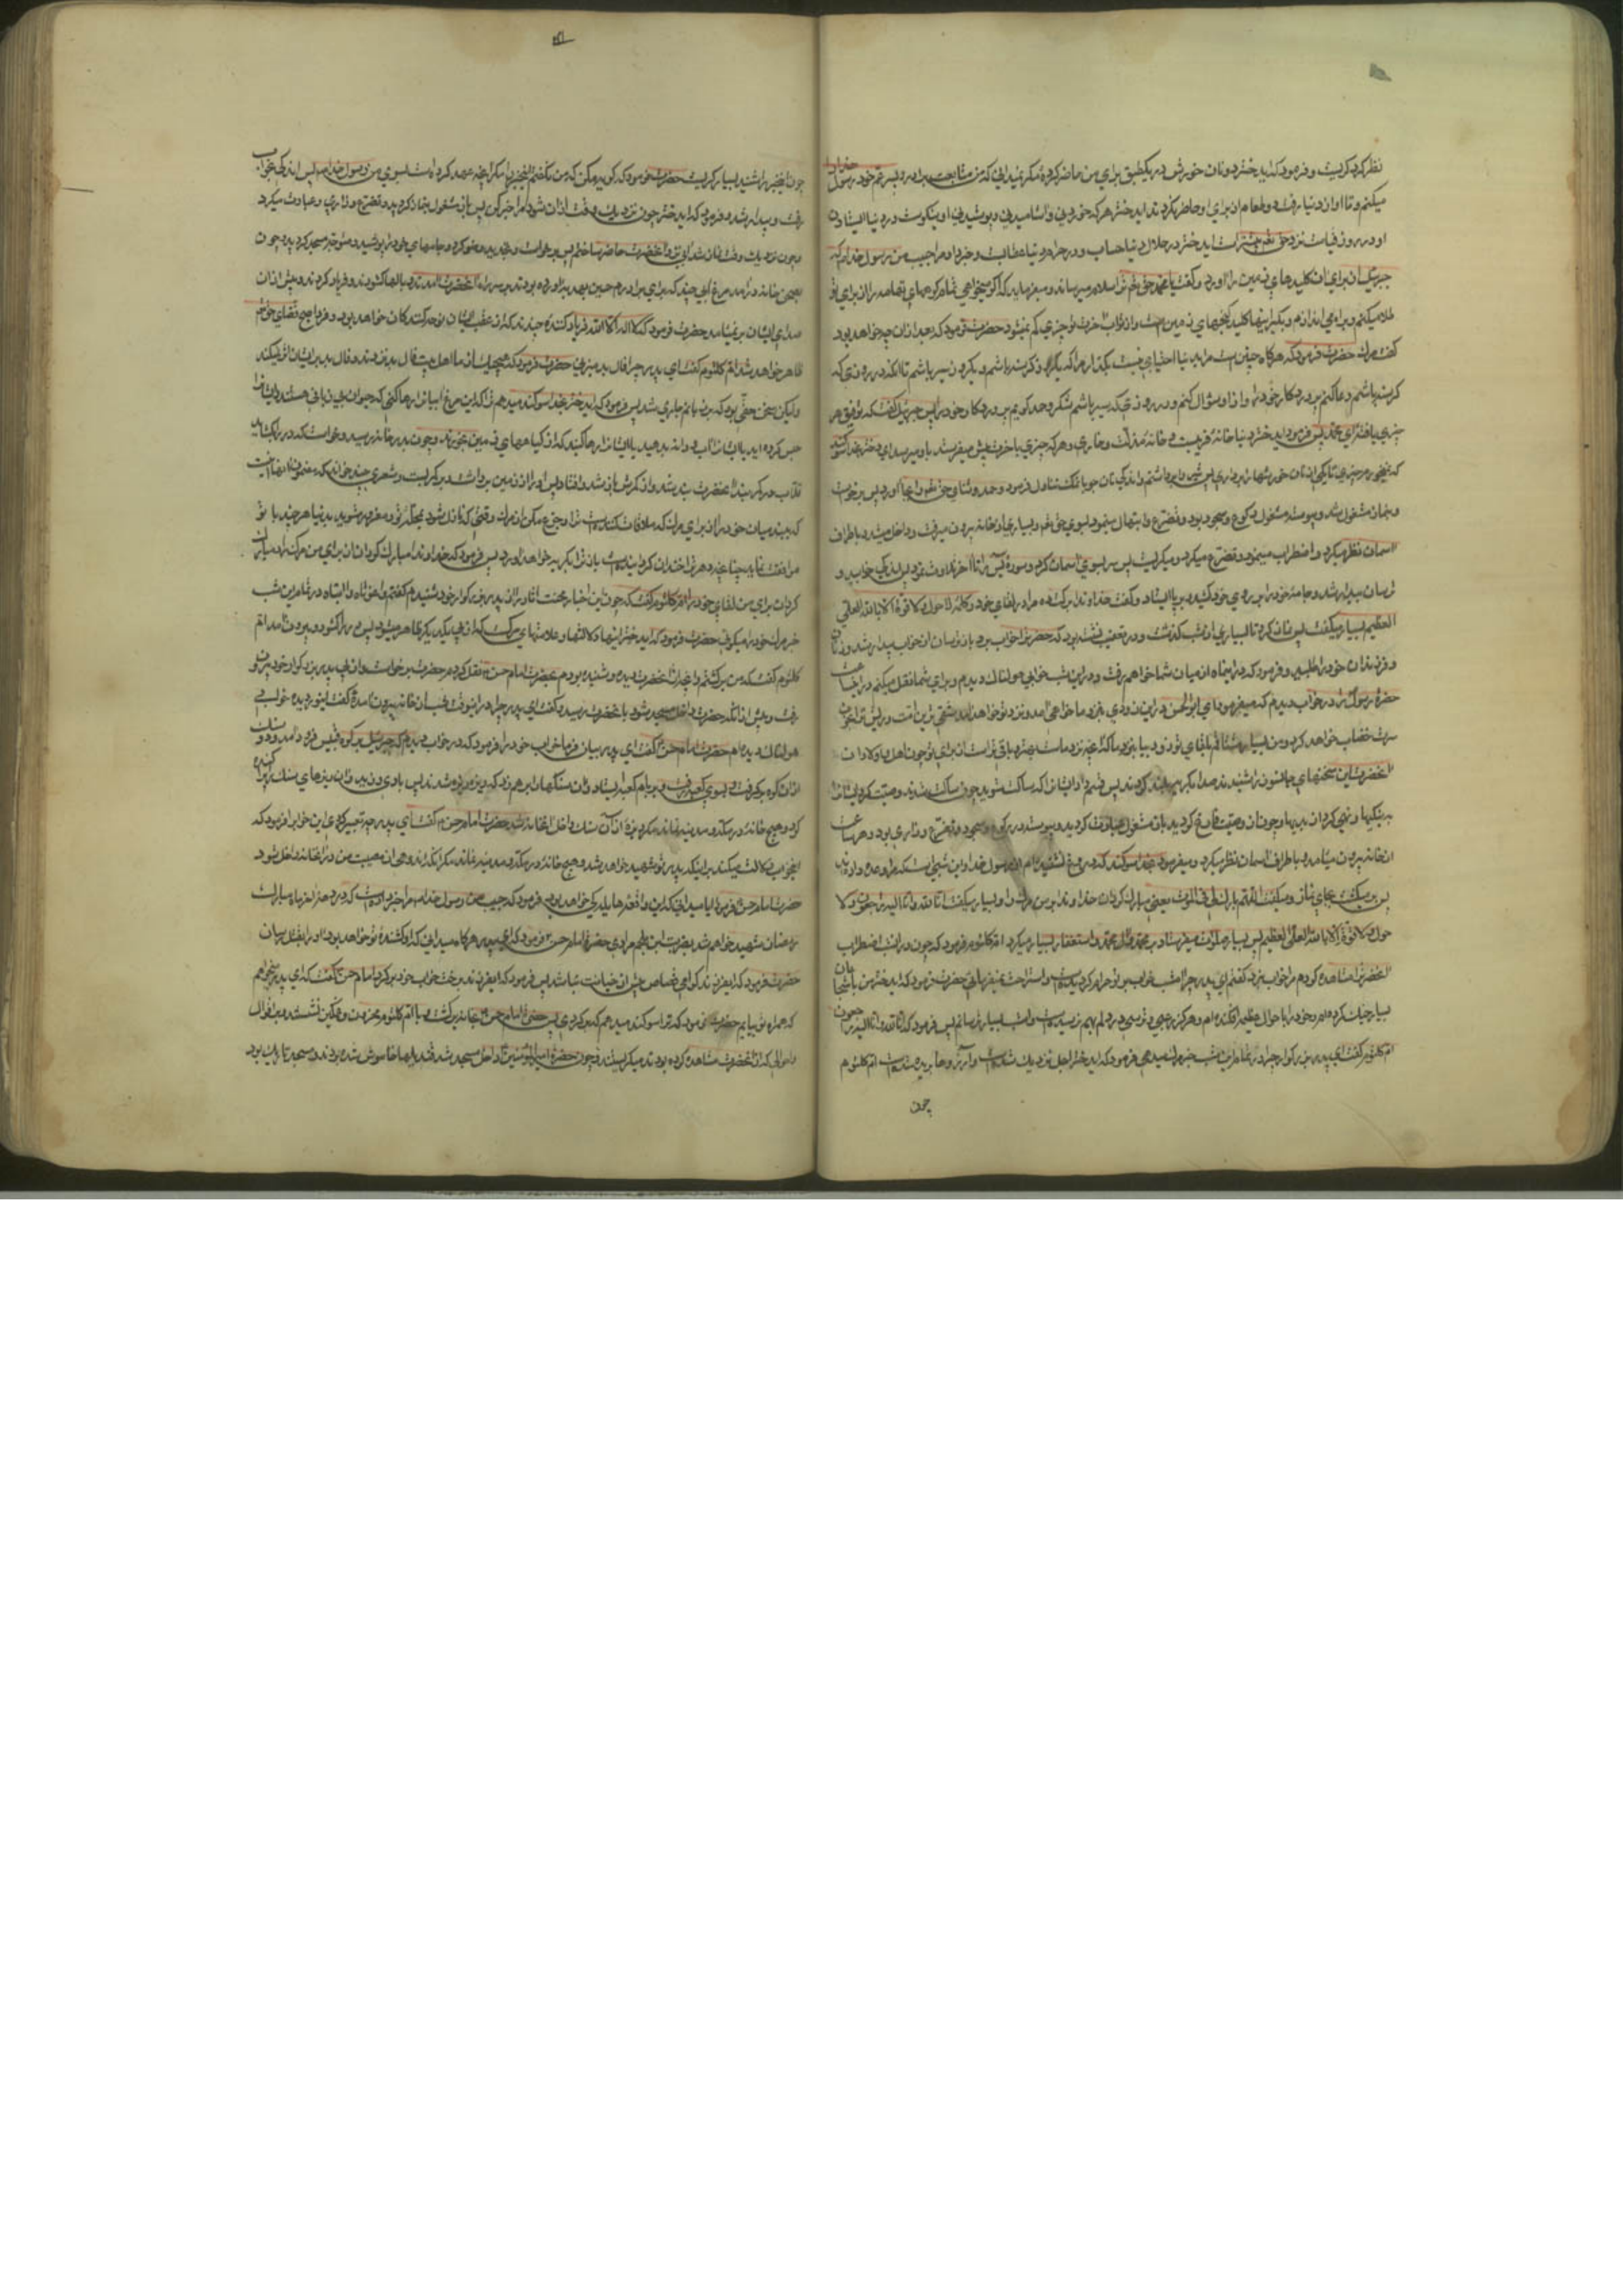 نظر کرد کریست و فرمود که ایدختر دو نان خورش در یکطبق برای من حاضر کردهٔ مکر نمیدانی که من متابعت برادر و پسر عم خود رسول خدا را
میکنم و تا او از دنیا رفت دو طعام از برای او حاضر نکردند ایدختر هر که خوردنی و آشامیدنی و پوشیدنی او نیکوست در دنیا ایستادن
او در روز قیامت نزد حق تعم بیشتر است ایدختر در حلال دنیا حساب و در حرام دنیا عقابست و خبر داد مرا حبیب من رسول خدا م که
جبرئیل از برای ان کلیدهای زمین را اورد و کفت یا محمد حق تعم ترا سلام میرساند و میفرماید که اکر میخواهی تمام کوههای تهامه را از برای تو
طلا میکنم و بکیر اینها کلید کنجهای زمین است و از ثواب اخرت تو چیزی کم نمیشود حضرت فرمود که بعد از ان چه خواهد بود
کفت مرک حضرت فرمود که هرکاه چنین است مرا بدنیا احتیاجی نیست بکذار مرا که یکروز کرسنه باشم و یکروز سیر باشم تا انکه در روزی که
کرسنه باشم دعا کنم پروردکار خود را و از او سؤال کنم و در روزی که سیر باشم شکر و حمد کویم پروردکار خود را پس جبرئیل کفت که توفیق هر
چیزی یافتهٔ ای محمد پس فرمود ایدختر دنیا خانهٔ فریبست و خانهٔ مذلت و خاری و هر که چیزی باخرت پیش میفرستد باو میرسد ای دختر بخدا سوکند
که نمیخورم چیزی تا یکی از نان خورشها را برداری پس شیر را برداشتم و اندکی نان جو با نمک تناول فرمود و حمد و ثنای حق تعم بجا اورد پس برخواست
و بنماز مشغول شد و پیوسته مشغول رکوع و سجود بود و تضرع و ابتهال مینمود بسوی حق تعم و بسیاری از خانه بیرون میرفت و داخل میشد و باطراف
اسمان نظر میکرد و اضطراب مینمود و تضرع میکرد و میکریست پس سر بسوی اسمان کرد و سورهٔ یس را تا اخر تلاوت نمود پس اندکی خوابید و
ترسان بیدار شد و جامهٔ خود را بر روی خود کشید و برپا ایستاد و کفت خداوندا برکت ده مرا در لقای خود و کلمهٔ لا حول و لا قوة الا بالله العلی
العظیم بسیار میکفت پس نماز کرد تا بسیاری از شب کذشت و در تعقیب نشسته بود که حضرت را خواب برد باز ترسان از خواب بیدار شد و زنان
و فرزندان خود را طلبید و فرمود که در این ماه از میان شما خواهم رفت و در این شب خوابی هولناک دیدم و برای شما نقل میکنم در این ساعت
حضرة رسول را در خواب دیدم که میفرمود یا ابو الحسن در این زودی بنزد ما خواهی امد و نزد تو خواهد امد شقی ترین امت و ریش ترا از خون
سرت خضاب خواهد کرد و من بسیار مشتاقم بلقای تو زود بیا بنزد ما که انچه نزد ماست بهتر و باقیتر است از برای تو چون اهل بیت و اولاد ان
انحضرت این سخنهای جانسوز را شنیدند صدا بکریه بلند کردند پس قسم داد ایشان را که ساکت شوید چون ساکت شدند وصیت کرد ایشان را
به نیکیها و نهی کرد از بدیها و چون از وصیت فارغ کردید باز مشغول عبادت کردید و پیوسته در رکوع و سجود و تضرع و زاری بود و هر ساعت
از خانه بیرون میامد و باطراف اسمان نظر میکرد و میفرمود بخدا سوکند که دروغ نشنیده ام از رسول خدا و این شبی است که مرا وعده داده اند
پس بر میکشت بجای نماز و میکفت اللهم بارک لی فی الموت یعنی مبارک کردان خداوندا بر من مرک را و بسیار میکفت انا لله و انا الیه راجعون و لا
حول و لا قوة الا بالله العلی العظیم پس بسیار صلوات میفرستاد بر محمد و ال محمد و استغفار بسیار میکرد ام کلثوم فرمود که چون در انشب اضطراب
انحضرت را مشاهده کردم مرا خواب نبرد کفتم ای پدر چرا امشب خواب بر تو حرام کردیده است و استراحت نمیفرمائی حضرت فرمود که ایدختر من با شجاعان
بسیار جنک کرده ام و خود را باحوال عظیم افکنده ام و هرکز رعبی و ترسی در دلم بهم نرسیده است و امشب بسیار ترسانم پس فرمود که انا لله و انا الیه راجعون
ام کلثوم کفت ای پدر بزرکوار چرا در تمام این شب خبر مرک میدهی فرمود که ایدختر اجل نزدیک شده است و آرزوها بریده شده است ام کلثوم
چون
چون اینخبر را شنید بسیار کریست حضرت فرمود که کریه مکن که من نکفتم اینخبر را مکر انچه عهد کرده است بسوی من رسول خدا م پس اندکی بخواب
رفت و بیدار شد و فرمود که ایدختر چون نزدیک وقت اذان شود مرا خبر کن پس باز مشغول نماز کردید و تضرع و زاری و عبادت میکرد
و چون نزدیک وقت اذان شد اب نزد انحضرت حاضر ساختم پس برخواست و تجدید وضو کرد و جامهای خود را پوشید و متوجه مسجد کردید چون
بصحن خانه درامد مرغ ابی چند که برای برادرم حسین بهدیه اورده بودند بر سر راه انحضرت امدند و بالها کشودند و فریاد کردند و پیش از ان
صدای ایشان بر نیامد حضرت فرمود که لا اله الا الله فریاد کننده چندند که از عقب ایشان نوحه کنندکان خواهد بود و فردا صبح قضای حق تعم
ظاهر خواهد شد ام کلثوم کفت ای پدر چرا فال بد میزنی حضرت فرمود که هیچیک از ما اهل بیت فال بد نزنند و فال بد بر ایشان اثر نمیکند
ولیکن سخن حقی بود که بر زبانم جاری شد پس فرمود که ایدختر بخدا سوکند میدهم ترا که این مرغ ابیان را رها کنی که حیوان بی زبانی هستند و ایشان را
حبس کرده اید یا ایشان را اب و دانه بدهید یا ایشان را رها کنید که از کیاههای زمین بخورند و چون بدر خانه رسید و خواست که در را بکشاید
قلاب در کمربند انحضرت بند شد و از کمرش باز شد و افتاد پس انرا از زمین برداشت و بر کمر بست و شعری چند خواند که مضمون انها اینست
که ببند میان خود را از برای مرک که ملاقات کننده است ترا و جزع مکن از مرک وقتی که نازل شود بمجلس تو و مغرور مشو بدنیا هر چند با تو
موافقت نماید چنانچه دهر ترا خندان کردانیده است باز ترا بکریه خواهد اورد پس فرمود که خداوندا مبارک کردان از برای من مرک را و مبارک
کردان برای من لقای خود را ام کلثوم کفت که چون این اخبار محنت اثار را از ان پدر بزرکوار خود شنیدم کفتم واغوثاه وا ابتاه در تمام این شب
خبر مرک خود را میکوئی حضرت فرمود که ایدختر اینها دلالتها و علامتهای مرک است که از پی یکدیکر ظاهر میشود پس در را کشود و بیرون امد ام
کلثوم کفت که من برکشتم و انچه از انحضرت دیده و شنیده بودم بحضرت امام حسن نقل کردم حضرت برخواست و از پی پدر بزرکوار خود بیرون
رفت و پیش از انکه حضرت داخل مسجد شود بانحضرت رسید و کفت ای پدر چرا در اینوقت شب از خانه بیرون امدهٔ کفت ای نور دیده خوابی
هولناک دیده ام حضرت امام حسن کفت ای پدر بیان فرما خواب خود را فرمود که در خواب دیدم که جبرئیل بر کوه ابوقبیس فرود امد و دو سنک
از ان کوه برکرفت و بسوی کعبه رفت و بر بام کعبه ایستاد و ان سنکها را بر هم زد که ریزه ریزه شدند پس بادی وزید و ان ریزهای سنک را پراکنده
کرد و هیچ خانهٔ در مکه و مدینه نماند مکر ریزهٔ از ان سنک داخل انخانه شد حضرت امام حسن کفت ای پدر چه تعبیر کردی این خواب را فرمود که
اینخواب دلالت میکند بر اینکه پدر تو شهید خواهد شد و هیچ خانهٔ در مکه و مدینه نماند مکر انکه اندوهی از مصیبت من در انخانه داخل شود
حضرت امام حسن فرمود ایا میدانی که این واقعه هایله کی خواهد بود فرمود که حبیب من رسول خدا م مرا خبر داده است که در دهه اخر ماه مبارک
رمضان شهید خواهم شد بضربت ابن ملجم مرادی حضرة امام حسن فرمود که ای پدر هرکاه میدانی که او کشندهٔ تو خواهد بود او را بقتل رسان
حضرت فرمود که ایفرزند کرامی قصاص پیش از جنایت نباشد پس فرمود که ایفرزند برخت خواب خود برکرد امام حسن کفت که ای پدر میخواهم
که همراه تو بیایم حضرت فرمود که ترا سوکند میدهم که برکردی پس حضرت امام حسن بخانه برکشت و با ام کلثوم محزون و غمکین نشستند و بر اقوال
و احوالی که از انحضرت مشاهده کرده بودند میکریستند و چون حضرة امیرالمؤمنین داخل مسجد شد قندیلها خاموش شده بودند و مسجد تاریک بود